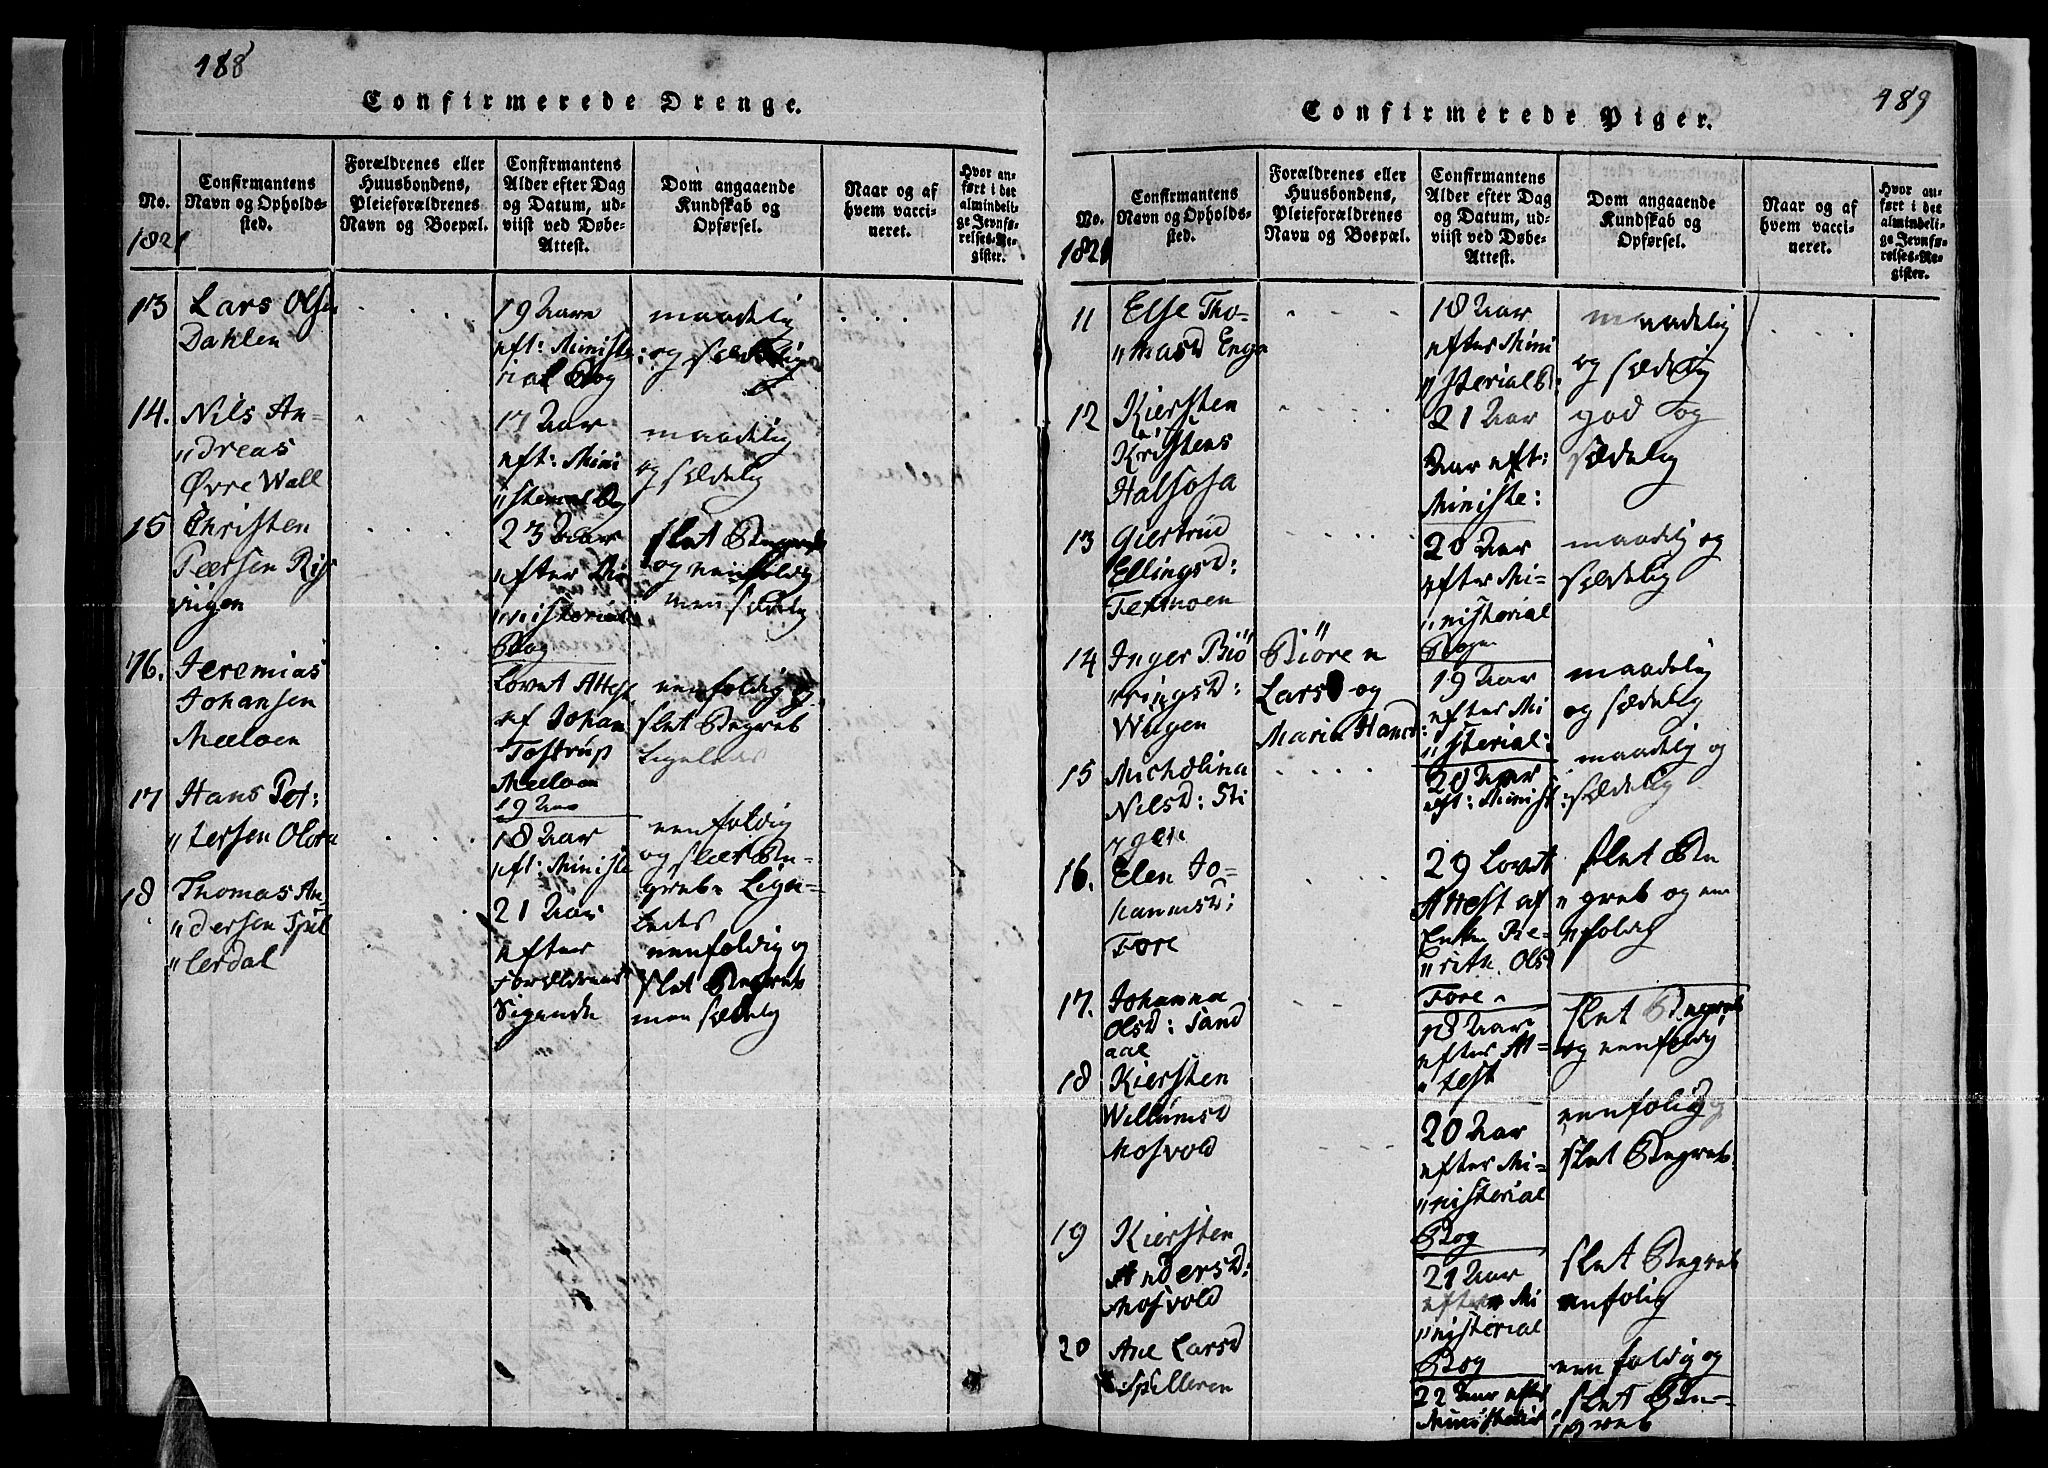 188
Confirmerede Drenge.
No.
1821
Confirmantens
Navn og Opholds-
sted.
Forældrenes eller
Huusbondens,
Pleieforældrenes
Navn og Boepæl.
Confirmantens
Alder efter Dag
og Datum, ud-
viist ved Døbe-
Attest.
Dom angaaende
Kundskab og
Opførsel.
Naar og af
hvem vacci-
neret.
Hvor an-
ført i det
almindeli-
ge Jevnfø-
relses-Re-
gister.
13
Lars Olsen
Dahlen
19 Aar
eft: Ministe
rial Bog
maadelig
og sædelig
14.
Nils An-
"dreas
Øvre Wall
17 Aar
eft: Mini
"sterial Bog
maadelig
og sædelig
15
Christen
Peersen
vigen
23 Aar
efter Mi
"nisterial
Bog
slet Begreb
og eenfoldig
men sædelig
16.
Jeremias
Johansen
Meeloen
Lovet Attest
af Johan
Tostrup
Meeloen
19 Aar
eenfoldig og
slet Begreb
Ligeledes
17
Hans Pet:
"tersen
18 Aar
eft: Ministe
eenfoldig
og slet Be-
greb Lige-
ledes
18
Thomas An
"dersen Spil
"lerdal
21 Aar
efter
Forældrenes
Sigende
eenfoldig og
slet Begreb
men sædelig
489
Confirmerede Piger.
No.
1821
Confirmantens
Navn og Opholds-
sted.
Forældrenes eller
Huusbondens,
Pleieforældrenes
Navn og Boepæl.
Confirmantens
Alder efter Dag
og Datum, ud-
viist ved Døbe-
Attest.
Dom angaaende
Kundskab og
Opførsel.
Naar og af
hvem vacci-
neret.
Hvor an-
ført i det
almindeli-
ge Jevnfø-
relses-Re-
gister.
11
Else Tho-
"masd Enga
18 Aar
efter Mini
"sterial B:
maadelig
og sædelig
12
Kiersten
Kristens
Halsosa
21 Aar
Aar eft:
Ministe:
god og
sædelig
13
Giertrud
Ellingsd:
20 Aar
efter Mi-
"nisterial
Bogen
maadelig og
sædelig
14
Inger Biö
"ringsd:
Wegen
Biören
Lars og
Maria Hansd
19 Aar
efter Mi
"sterial:
maadelig
og sædelig
15
Micholina
Nilsd: Sti
"gen
20 Aar
eft: Minist:
maadelig og
sædelig
16.
Elen Jo-
hannisd:
Fore
29 Lovet
Attest af
Enken Be-
"rith Olsd
Fore
slet Be
"greb og een
"foldig
17.
Johanna
Olsd: Sand
aal
18 Aar
efter At-
"test
slet Begreb
og eenfoldig
18
Kiersten
Willumsd
Mosvold
20 Aar
efter Mi-
"nisterial
Bog
eenfoldig og
slet Begreb
19
Kiersten
Andersd:
Mosvold
21 Aar
efter Mi
"nisterial
Bog
slet Begreb
eenfoldig
20
Ane Larsd
Spilleren
22 Aar efter
Ministerial
eenfoldig og
slet Be-
greb